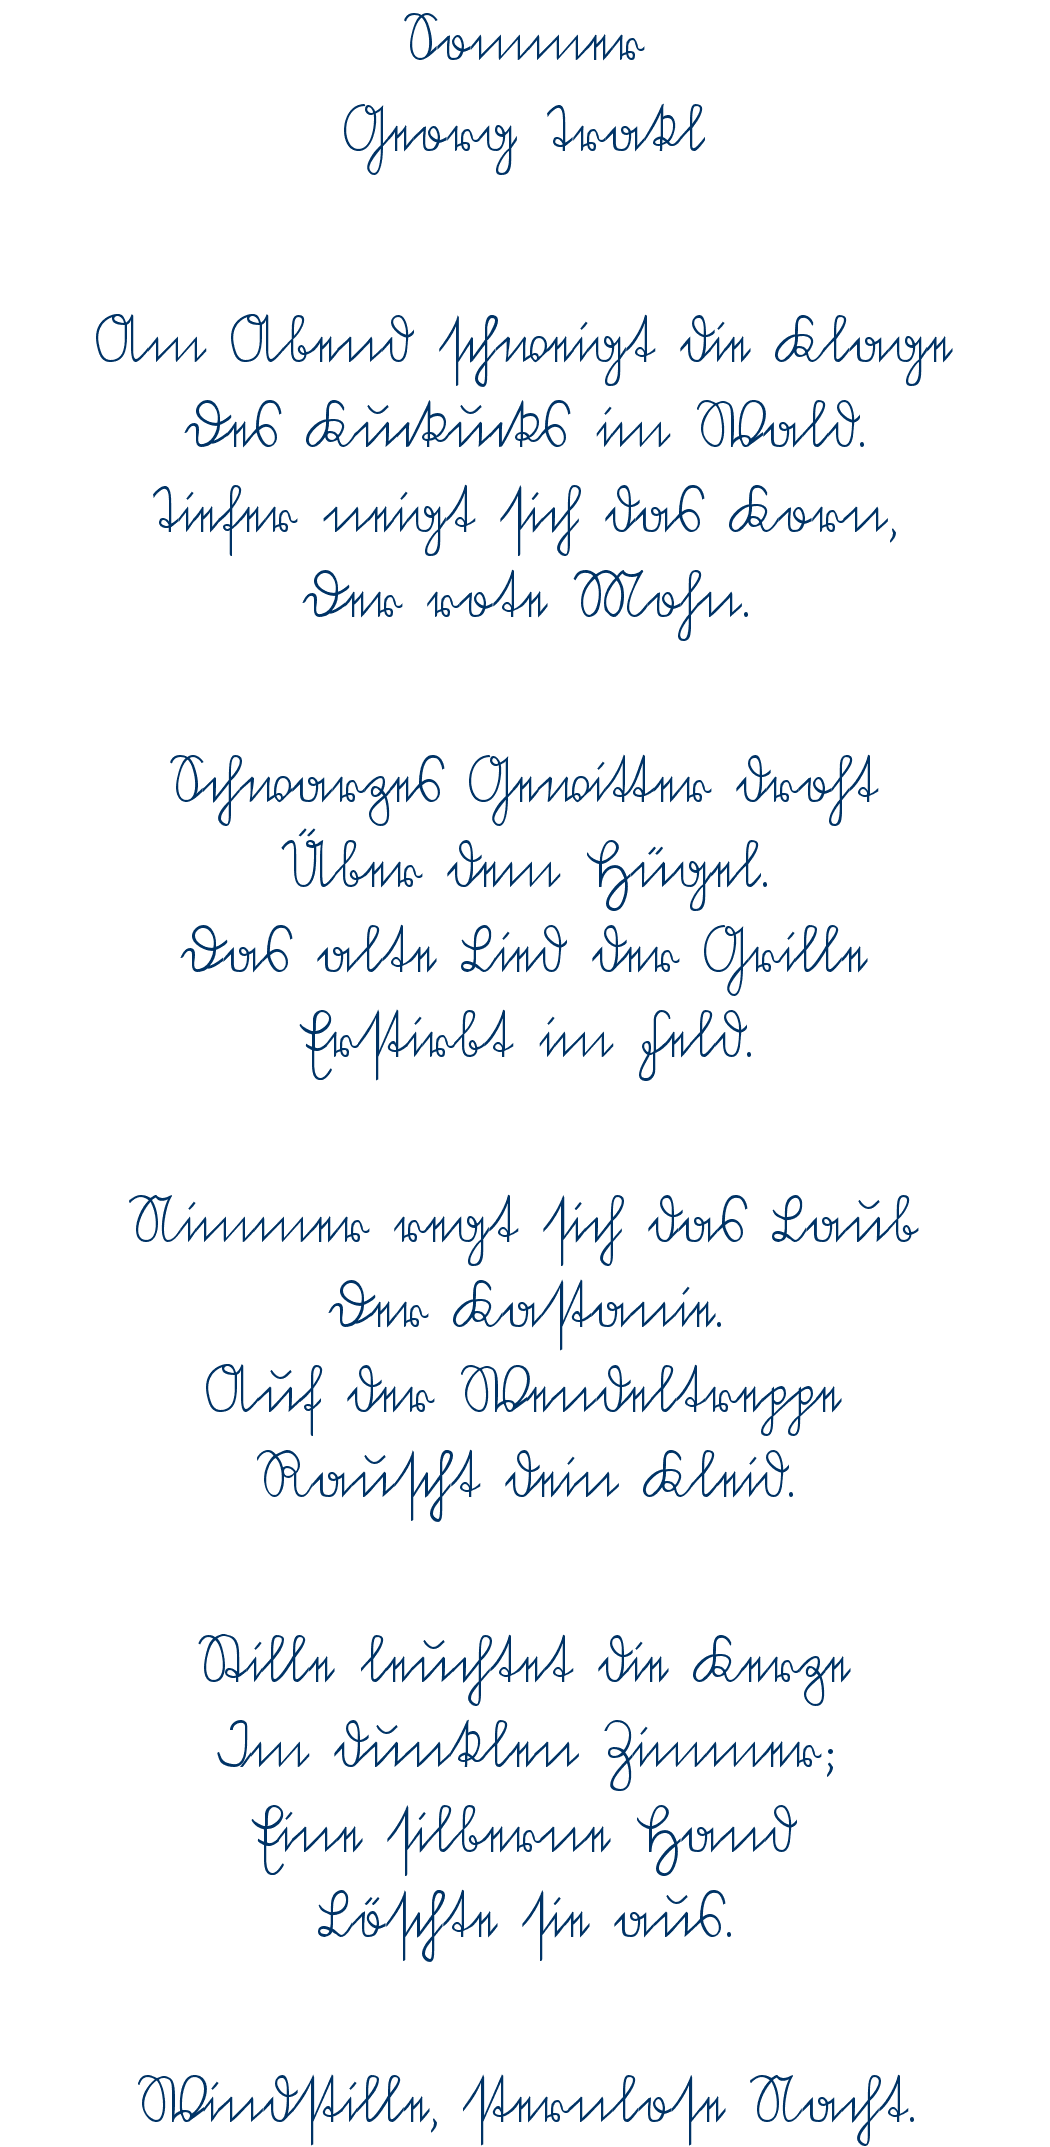 Sommer
Georg Trakl
Am Abend schweigt die Klage
Des Kuckucks im Wald.
Tiefer neigt sich das Korn,
Der rote Mohn.
Schwarzes Gewitter droht
Über dem Hügel.
Das alte Lied der Grille
Erstirbt im Feld.
Nimmer regt sich das Laub
Der Kastanie.
Auf der Wendeltreppe
Rauscht dein Kleid.
Stille leuchtet die Kerze
Im dunklen Zimmer;
Eine silberne Hand
Löschte sie aus.
Windstille, sternlose Nacht.